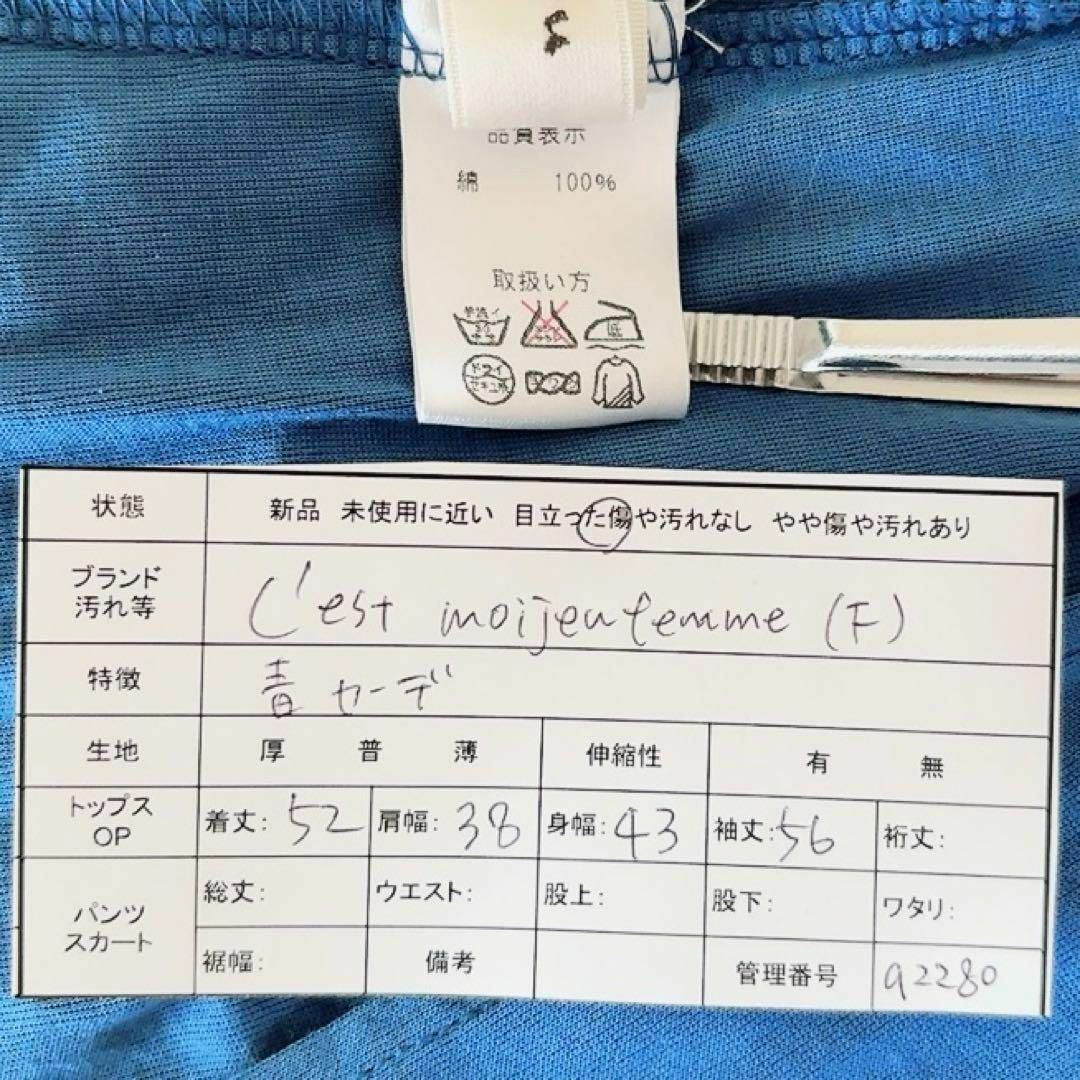 品質表示
綿 100%
取扱い方
手洗イ
低
ドライ
セキユ系
状態 新品 未使用に近い 目立った傷や汚れなし やや傷や汚れあり
ブランド
汚れ等
C'est moijeufemme (F)
特徴 青カーデ
生地 厚 普 薄 伸縮性 有 無
トップス
OP
着丈: 52 肩幅: 38 身幅: 43 袖丈: 56 裄丈:
パンツ
スカート
総丈: ウエスト: 股上: 股下: ワタリ:
裾幅: 備考 管理番号 a2280